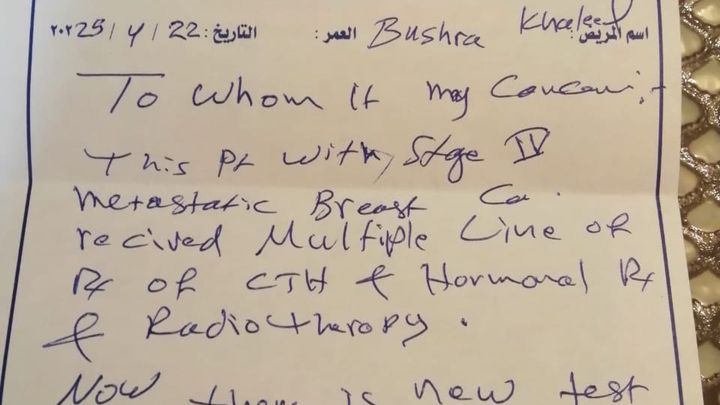 اسم المريض: Bushra Khaleel العمر: التاريخ: 22 / 4 / 2025
To whom It may Concern,
This Pt with Stge IV
metastatic Breast Ca.
recived Multiple Line of
Rx of CTH & Hormonal Rx
& Radiotherapy.
Now there is new test